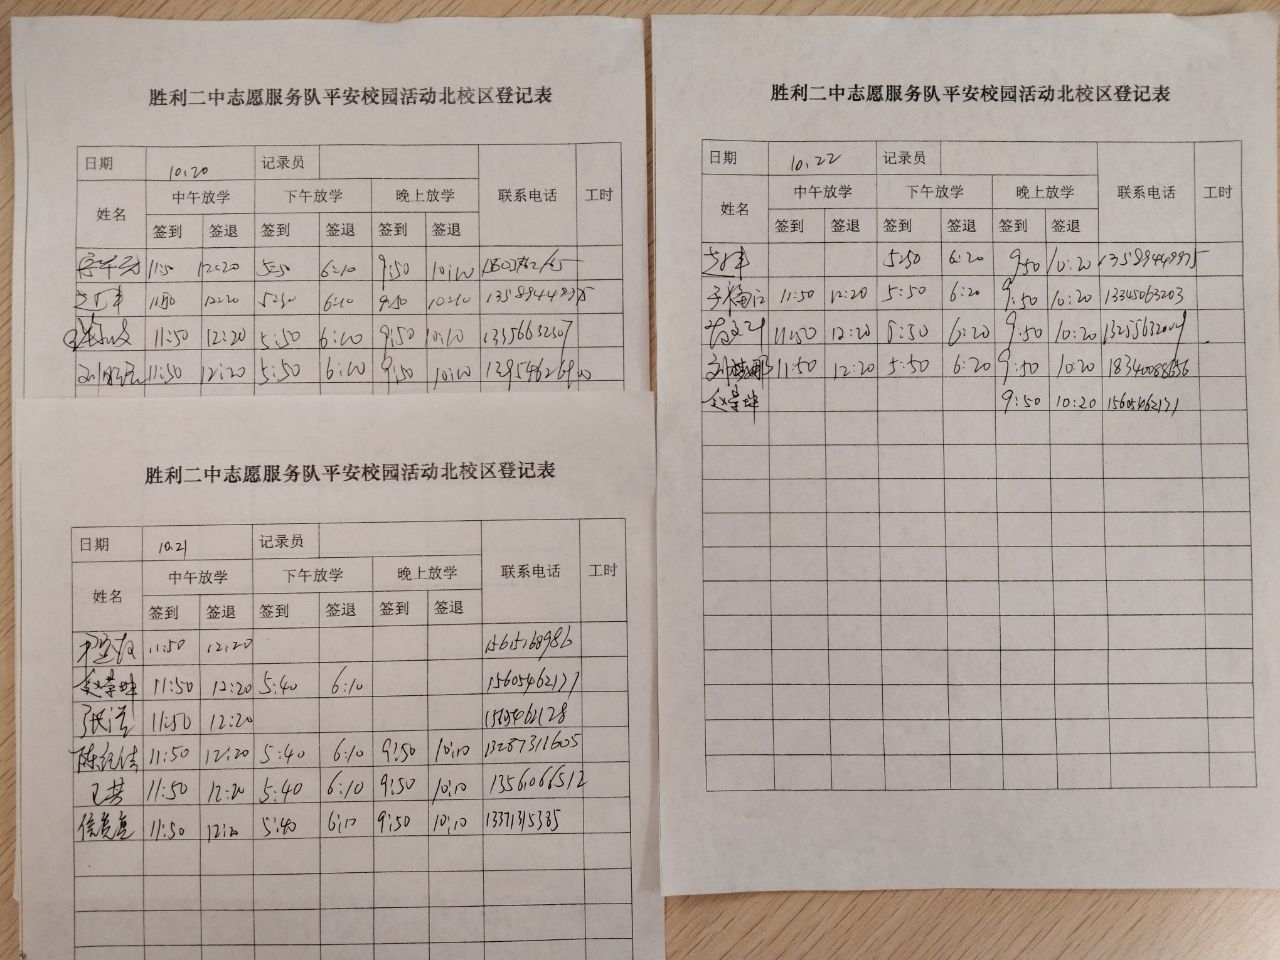 胜利二中志愿服务队平安校园活动北校区登记表
日期 10.20 记录员 联系电话 工时
姓名 中午放学 下午放学 晚上放学
签到 签退 签到 签退 签到 签退
11:50 12:20 5:50 6:10 9:50 10:10
11:50 12:20 5:50 6:10 9:50 10:10 13589449975
11:50 12:20 5:50 6:10 9:50 10:10 13356632507
11:50 12:20 5:50 6:10 9:50 10:10
胜利二中志愿服务队平安校园活动北校区登记表
日期 10.21 记录员 联系电话 工时
姓名 中午放学 下午放学 晚上放学
签到 签退 签到 签退 签到 签退
11:50 12:20
赵荣坤 11:50 12:20 5:40 6:10 15605462171
张洁 11:50 12:20
11:50 12:20 5:40 6:10 9:50 10:10 13287311605
王芸 11:50 12:20 5:40 6:10 9:50 10:10 13561066512
11:50 12:20 5:40 6:10 9:50 10:10 13371315385
胜利二中志愿服务队平安校园活动北校区登记表
日期 10.22 记录员 联系电话 工时
姓名 中午放学 下午放学 晚上放学
签到 签退 签到 签退 签到 签退
5:50 6:20 9:50 10:20 13589449975
11:50 12:20 5:50 6:20 9:50 10:20 13345063203
11:50 12:20 5:50 6:20 9:50 10:20
11:50 12:20 5:50 6:20 9:50 10:20 18340088656
赵荣坤 9:50 10:20 15605462171